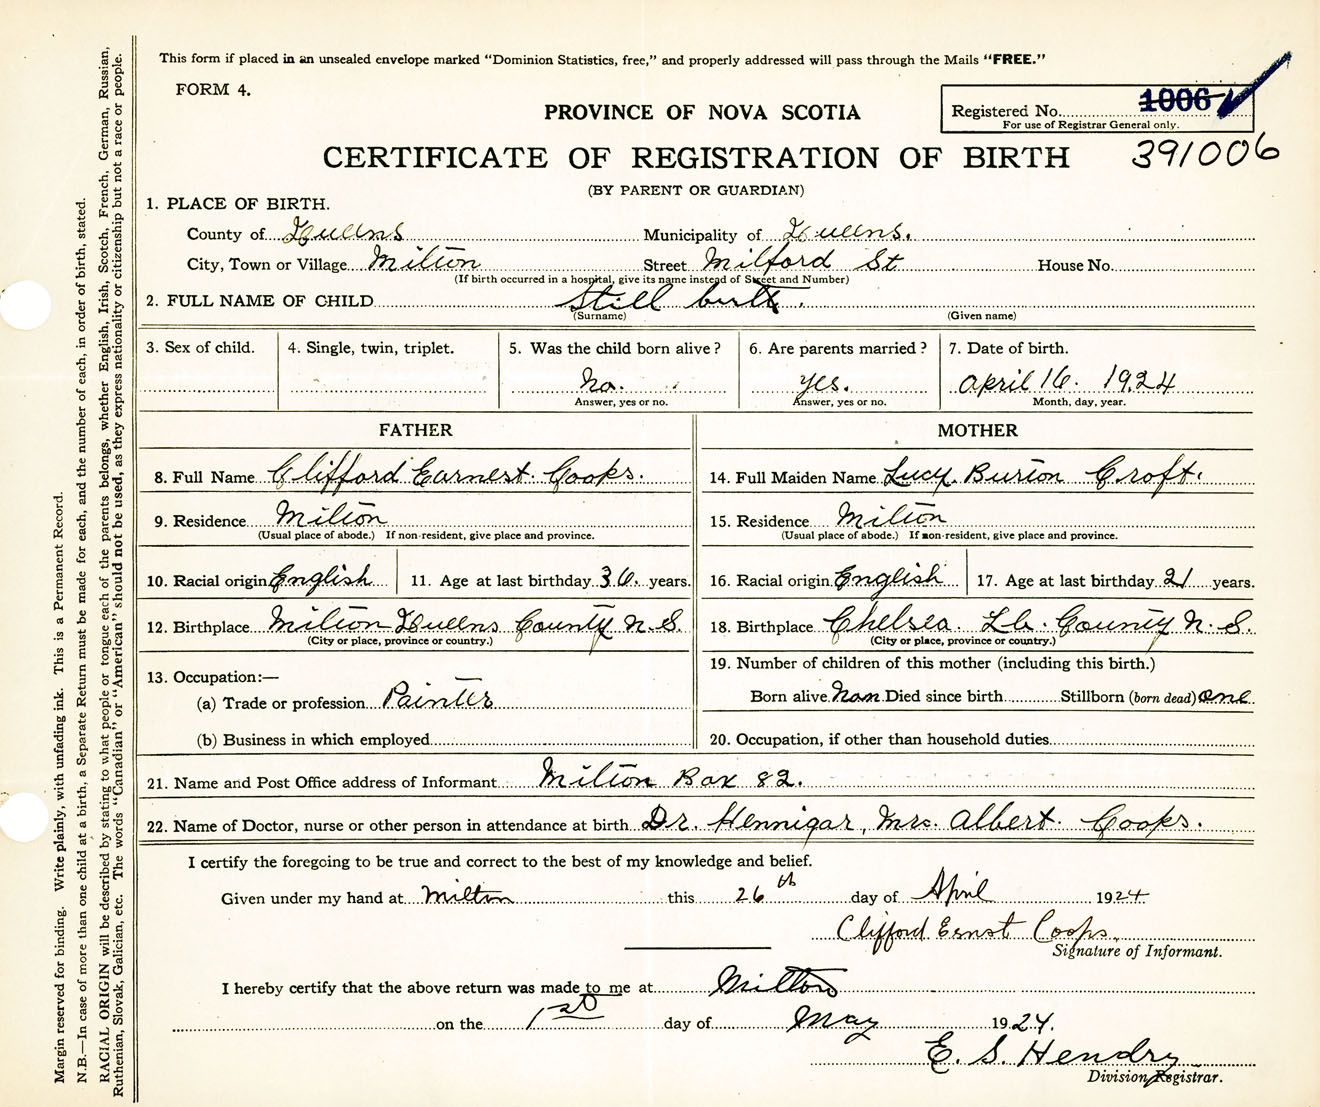 This form if placed in an unsealed envelope marked "Dominion Statistics, free," and properly addressed will pass through the Mails "FREE."
FORM 4.
PROVINCE OF NOVA SCOTIA
Registered No. 1006
For use of Registrar General only.
CERTIFICATE OF REGISTRATION OF BIRTH
391006
(BY PARENT OR GUARDIAN)
1. PLACE OF BIRTH.
County of Queens Municipality of Queens.
City, Town or Village Milton Street Milford St House No.
(If birth occurred in a hospital, give its name instead of Street and Number)
2. FULL NAME OF CHILD Still birth.
(Surname) (Given name)
3. Sex of child. 4. Single, twin, triplet. 5. Was the child born alive? 6. Are parents married? 7. Date of birth.
No. yes. April 16. 1924
Answer, yes or no. Answer, yes or no. Month, day, year.
FATHER MOTHER
8. Full Name Clifford Earnest Coops. 14. Full Maiden Name Lucy Burton Croft.
9. Residence Milton 15. Residence Milton
(Usual place of abode.) If non-resident, give place and province. (Usual place of abode.) If non-resident, give place and province.
10. Racial origin English 11. Age at last birthday 36. years. 16. Racial origin English 17. Age at last birthday 21 years.
12. Birthplace Milton Queens County N.S. 18. Birthplace Chelsea. L.C. County N.S.
(City or place, province or country.) (City or place, province or country.)
13. Occupation:— 19. Number of children of this mother (including this birth.)
(a) Trade or profession Painter Born alive Non Died since birth Stillborn (born dead) one
(b) Business in which employed 20. Occupation, if other than household duties
21. Name and Post Office address of Informant Milton Box 82.
22. Name of Doctor, nurse or other person in attendance at birth Dr. Hennigar, Mrs. Albert Coops.
I certify the foregoing to be true and correct to the best of my knowledge and belief.
Given under my hand at Milton this 26th day of April 1924
Clifford Ernst Coops
Signature of Informant.
I hereby certify that the above return was made to me at Milton
on the 1st day of May 1924.
E. S. Hendry
Division Registrar.
Margin reserved for binding. Write plainly, with unfading ink. This is a Permanent Record.
N.B.—In case of more than one child at a birth, a Separate Return must be made for each, and the number of each, in order of birth, stated.
RACIAL ORIGIN will be described by stating to what people or tongue each of the parents belongs, whether English, Irish, Scotch, French, German, Russian,
Ruthenian, Slovak, Galician, etc. The words "Canadian" or "American" should not be used, as they express nationality or citizenship but not a race or people.